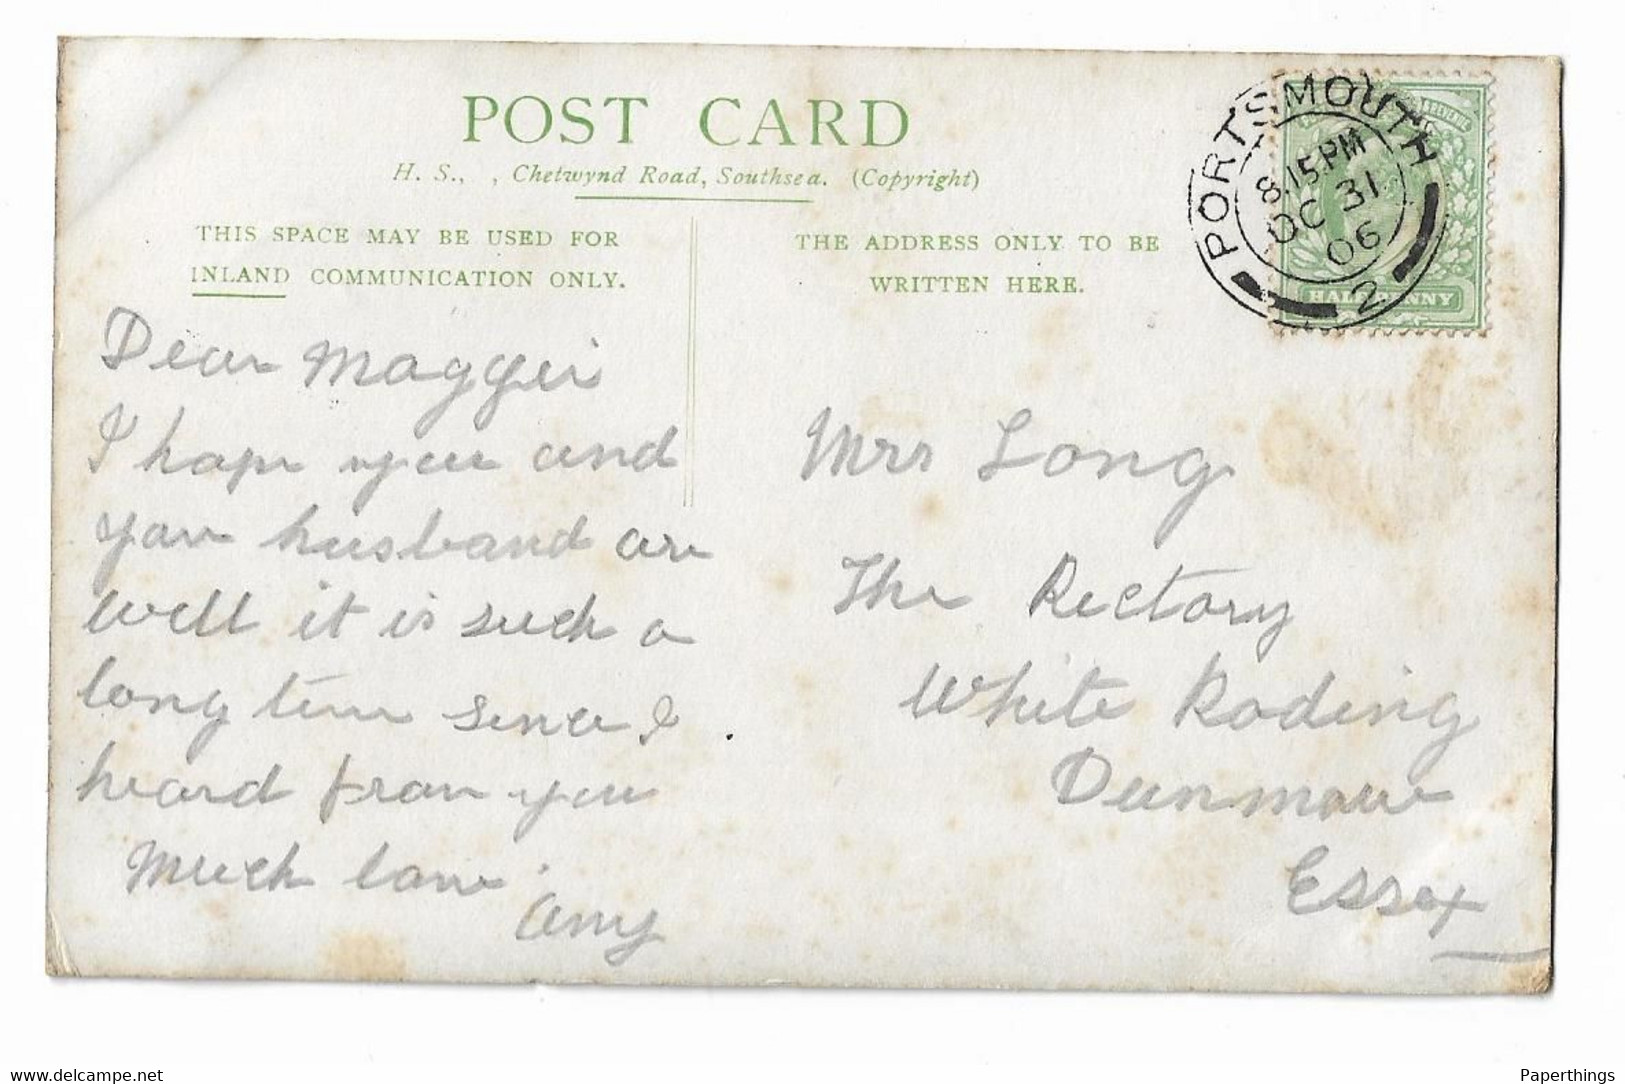 POST CARD
H. S., , Chetwynd Road, Southsea. (Copyright)
THIS SPACE MAY BE USED FOR
INLAND COMMUNICATION ONLY.
THE ADDRESS ONLY TO BE
WRITTEN HERE.
PORTSMOUTH
8.15 PM
OC 31
06
2
HALFPENNY
Dear Maggei
I hope you and
your husband are
well it is such a
long time since I
heard from you
Much love
Amy
Mrs Long
The Rectory
White Roding
Dunmow
Essex
www.delcampe.net
Paperthings